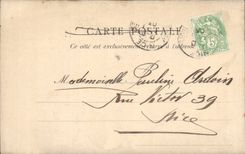 CARTE POSTALE
Ce côté est exclusivement réservé à l'adresse
5
Mademoiselle Pauline Ardoin
Rue Victor 39
Nice